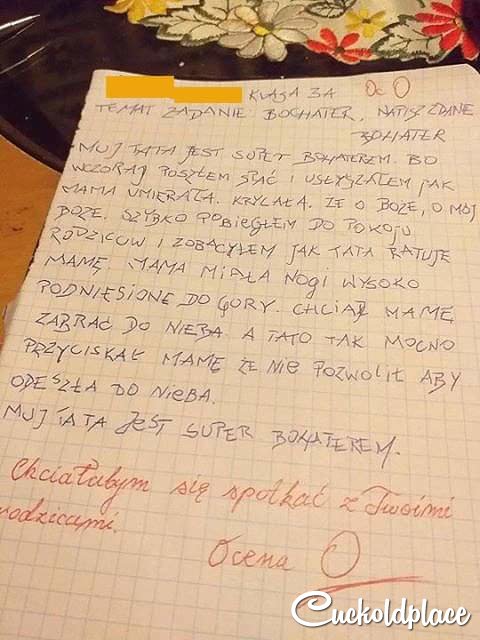 KLASA 3A Oc 0
TEMAT ZADANIE: BOCHATER, NATISZ ZDANE
BOHATER
MUJ TATA JEST SUPET BOHATEREM. BO
WCZORAJ POSZŁEM SPAĆ I USŁYSZAŁEM JAK
MAMA UMIERAŁA. KRYCZAŁA. ŻE O BOŻE, O MÓJ
BOŻE. SZYBKO POBIEGŁEM DO POKOJU
RODZICUW I ZOBACYŁEM JAK TATA RATUJE
MAMĘ. MAMA MIAŁA NOGI WYSOKO
PODNIESIONE DO GÓRY. CHCIAŁ MAMĘ
ZABRAĆ DO NIEBA. A TATO TAK MOCNO
PRZYCISKAŁ MAMĘ ŻE NIE POZWOLIŁ ABY
ODESZŁA DO NIEBA.
MUJ TATA JEST SUPER BOHATEREM.
Chciałabym się spotkać z Twoimi
rodzicami.
Ocena 0
Cuckoldplace